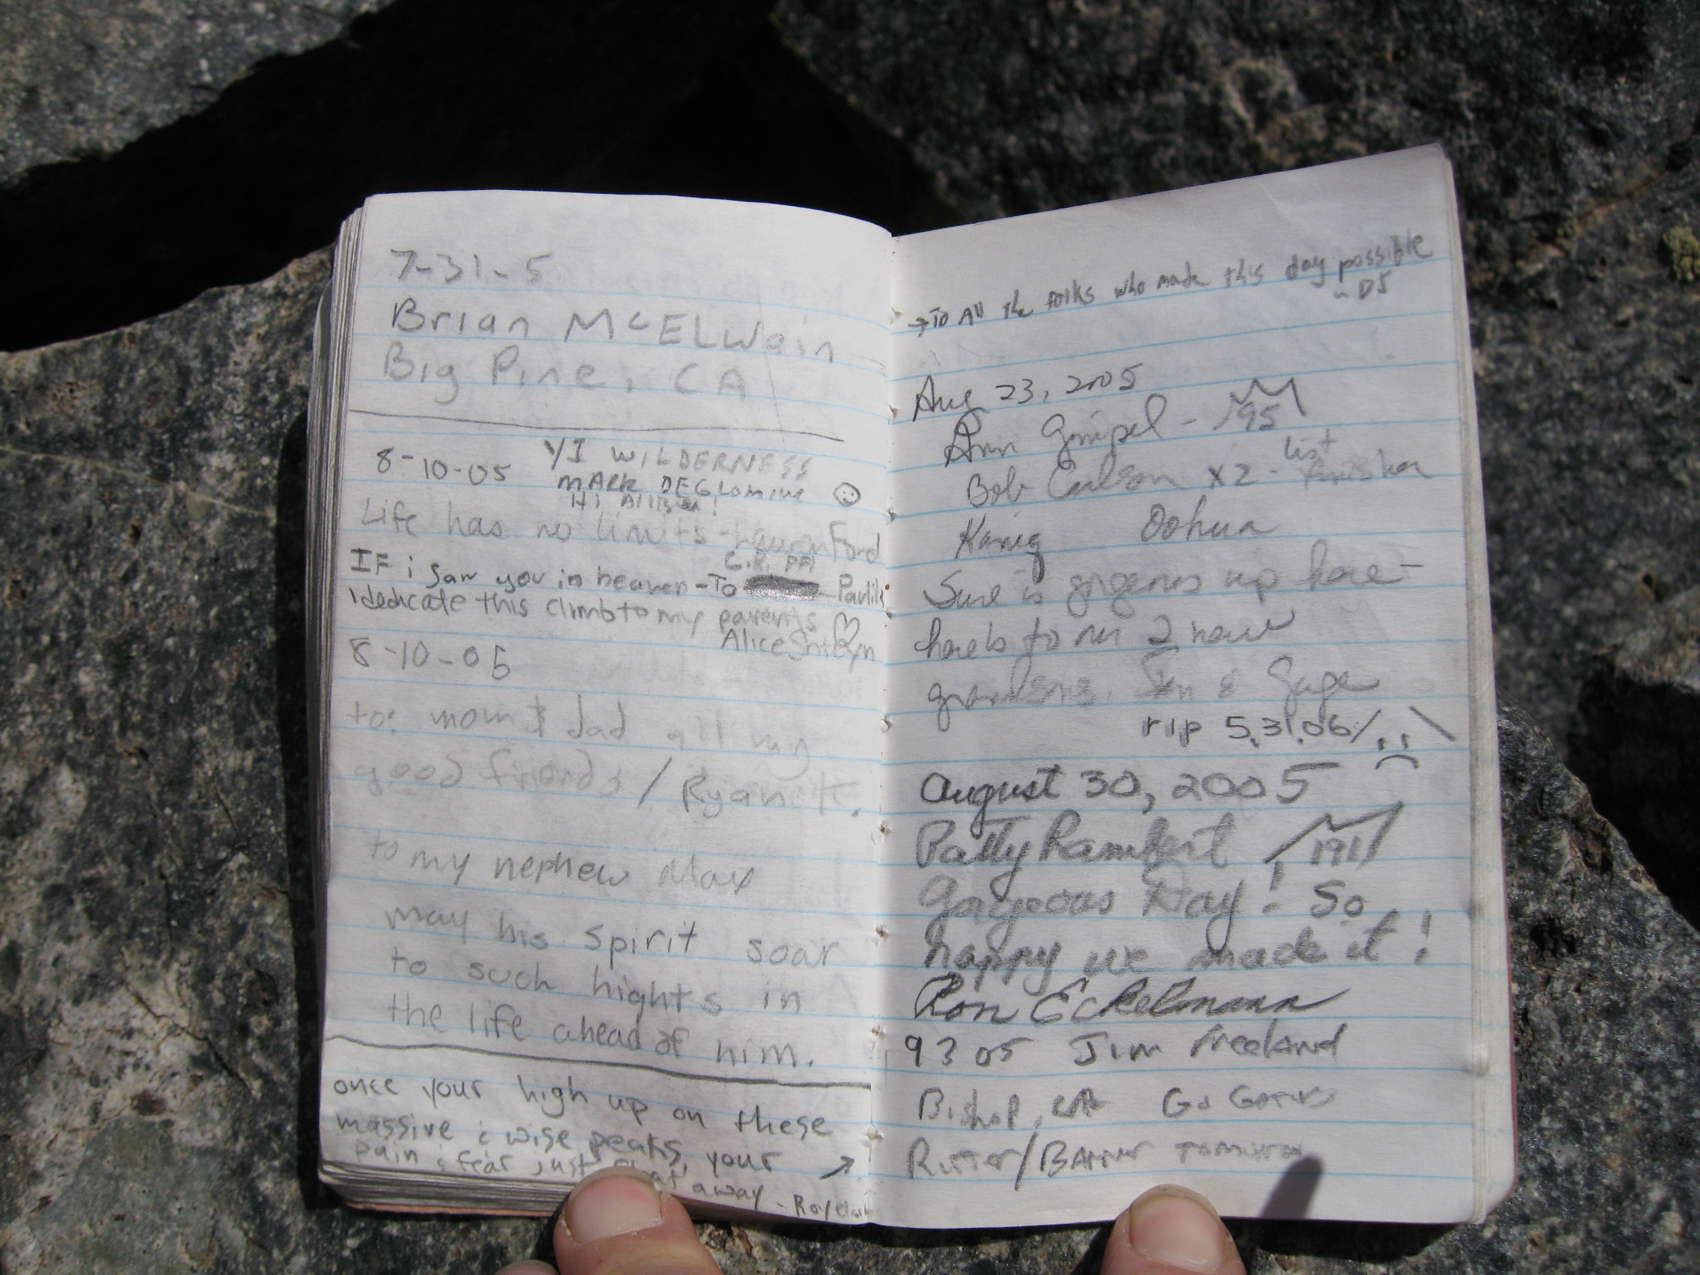 7-31-5
Brian McELwain
Big Pine, CA
8-10-05 YI WILDERNESS
mARk DEGLomine
Hi Allison!
Life has no limits - Lauren Ford
IF i saw you in heaven - To
i dedicate this climb to my parents ♡
Alice
8-10-05
to: mom & dad all my
good friends / Ryan K.
to my nephew Max
may his spirit soar
to such hights in
the life ahead of him.
once your high up on these
massive & wise peaks, your
pain & fear just float away -
→ To All the folks who made this day possible
~ DJ
Aug 23, 2005
Ann Gimpel - 95
Bob Carlson x2 - list finisher
Sure is gorgeous up here -
here's to our 2 new
grandsons, & Gage
rip 5.31.06
August 30, 2005
Patty Rambert 191
Gorgeous Day! So
happy we made it!
Ron Eckelmann
9 3 05 Jim Freeland
Bishop, CA Go Gators
Ritter/Banner tomorrow